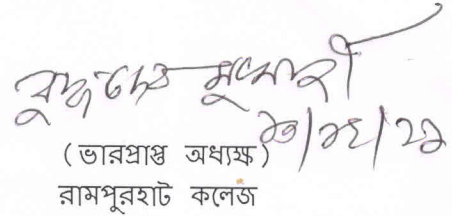 বুদ্ধদেব মুখার্জী
(ভারপ্রাপ্ত অধ্যক্ষ)
রামপুরহাট কলেজ